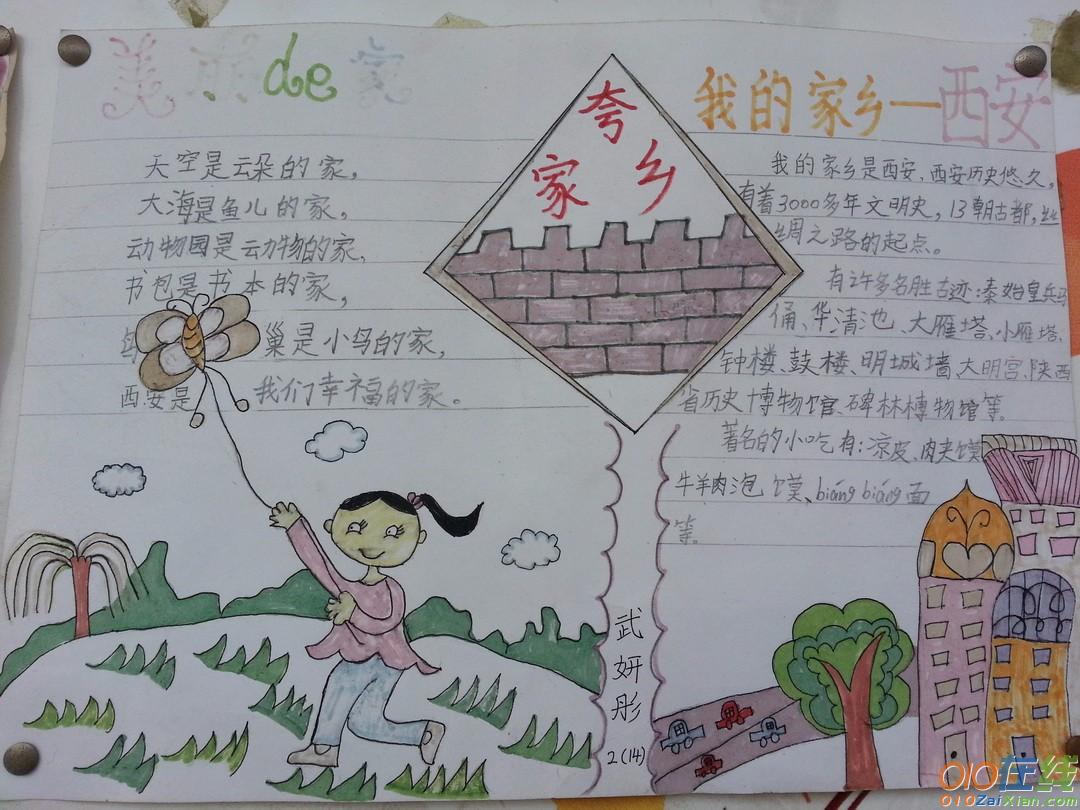 美丽de家
天空是云朵的家，
大海是鱼儿的家，
动物园是动物的家，
书包是书本的家，
巢是小鸟的家，
西安是 我们幸福的家。
夸
家乡
我的家乡—西安
我的家乡是西安、西安历史悠久，
有着3000多年文明史，13朝古都，丝
绸之路的起点。
有许多名胜古迹：秦始皇兵马
俑、华清池、大雁塔、小雁塔、
钟楼、鼓楼、明城墙、大明宫、陕西
省历史博物馆、碑林博物馆等。
著名的小吃有：凉皮、肉夹馍
牛羊肉泡馍、biángbiáng面
等。
武妍彤
2(14)
010在线
010ZaiXian.com